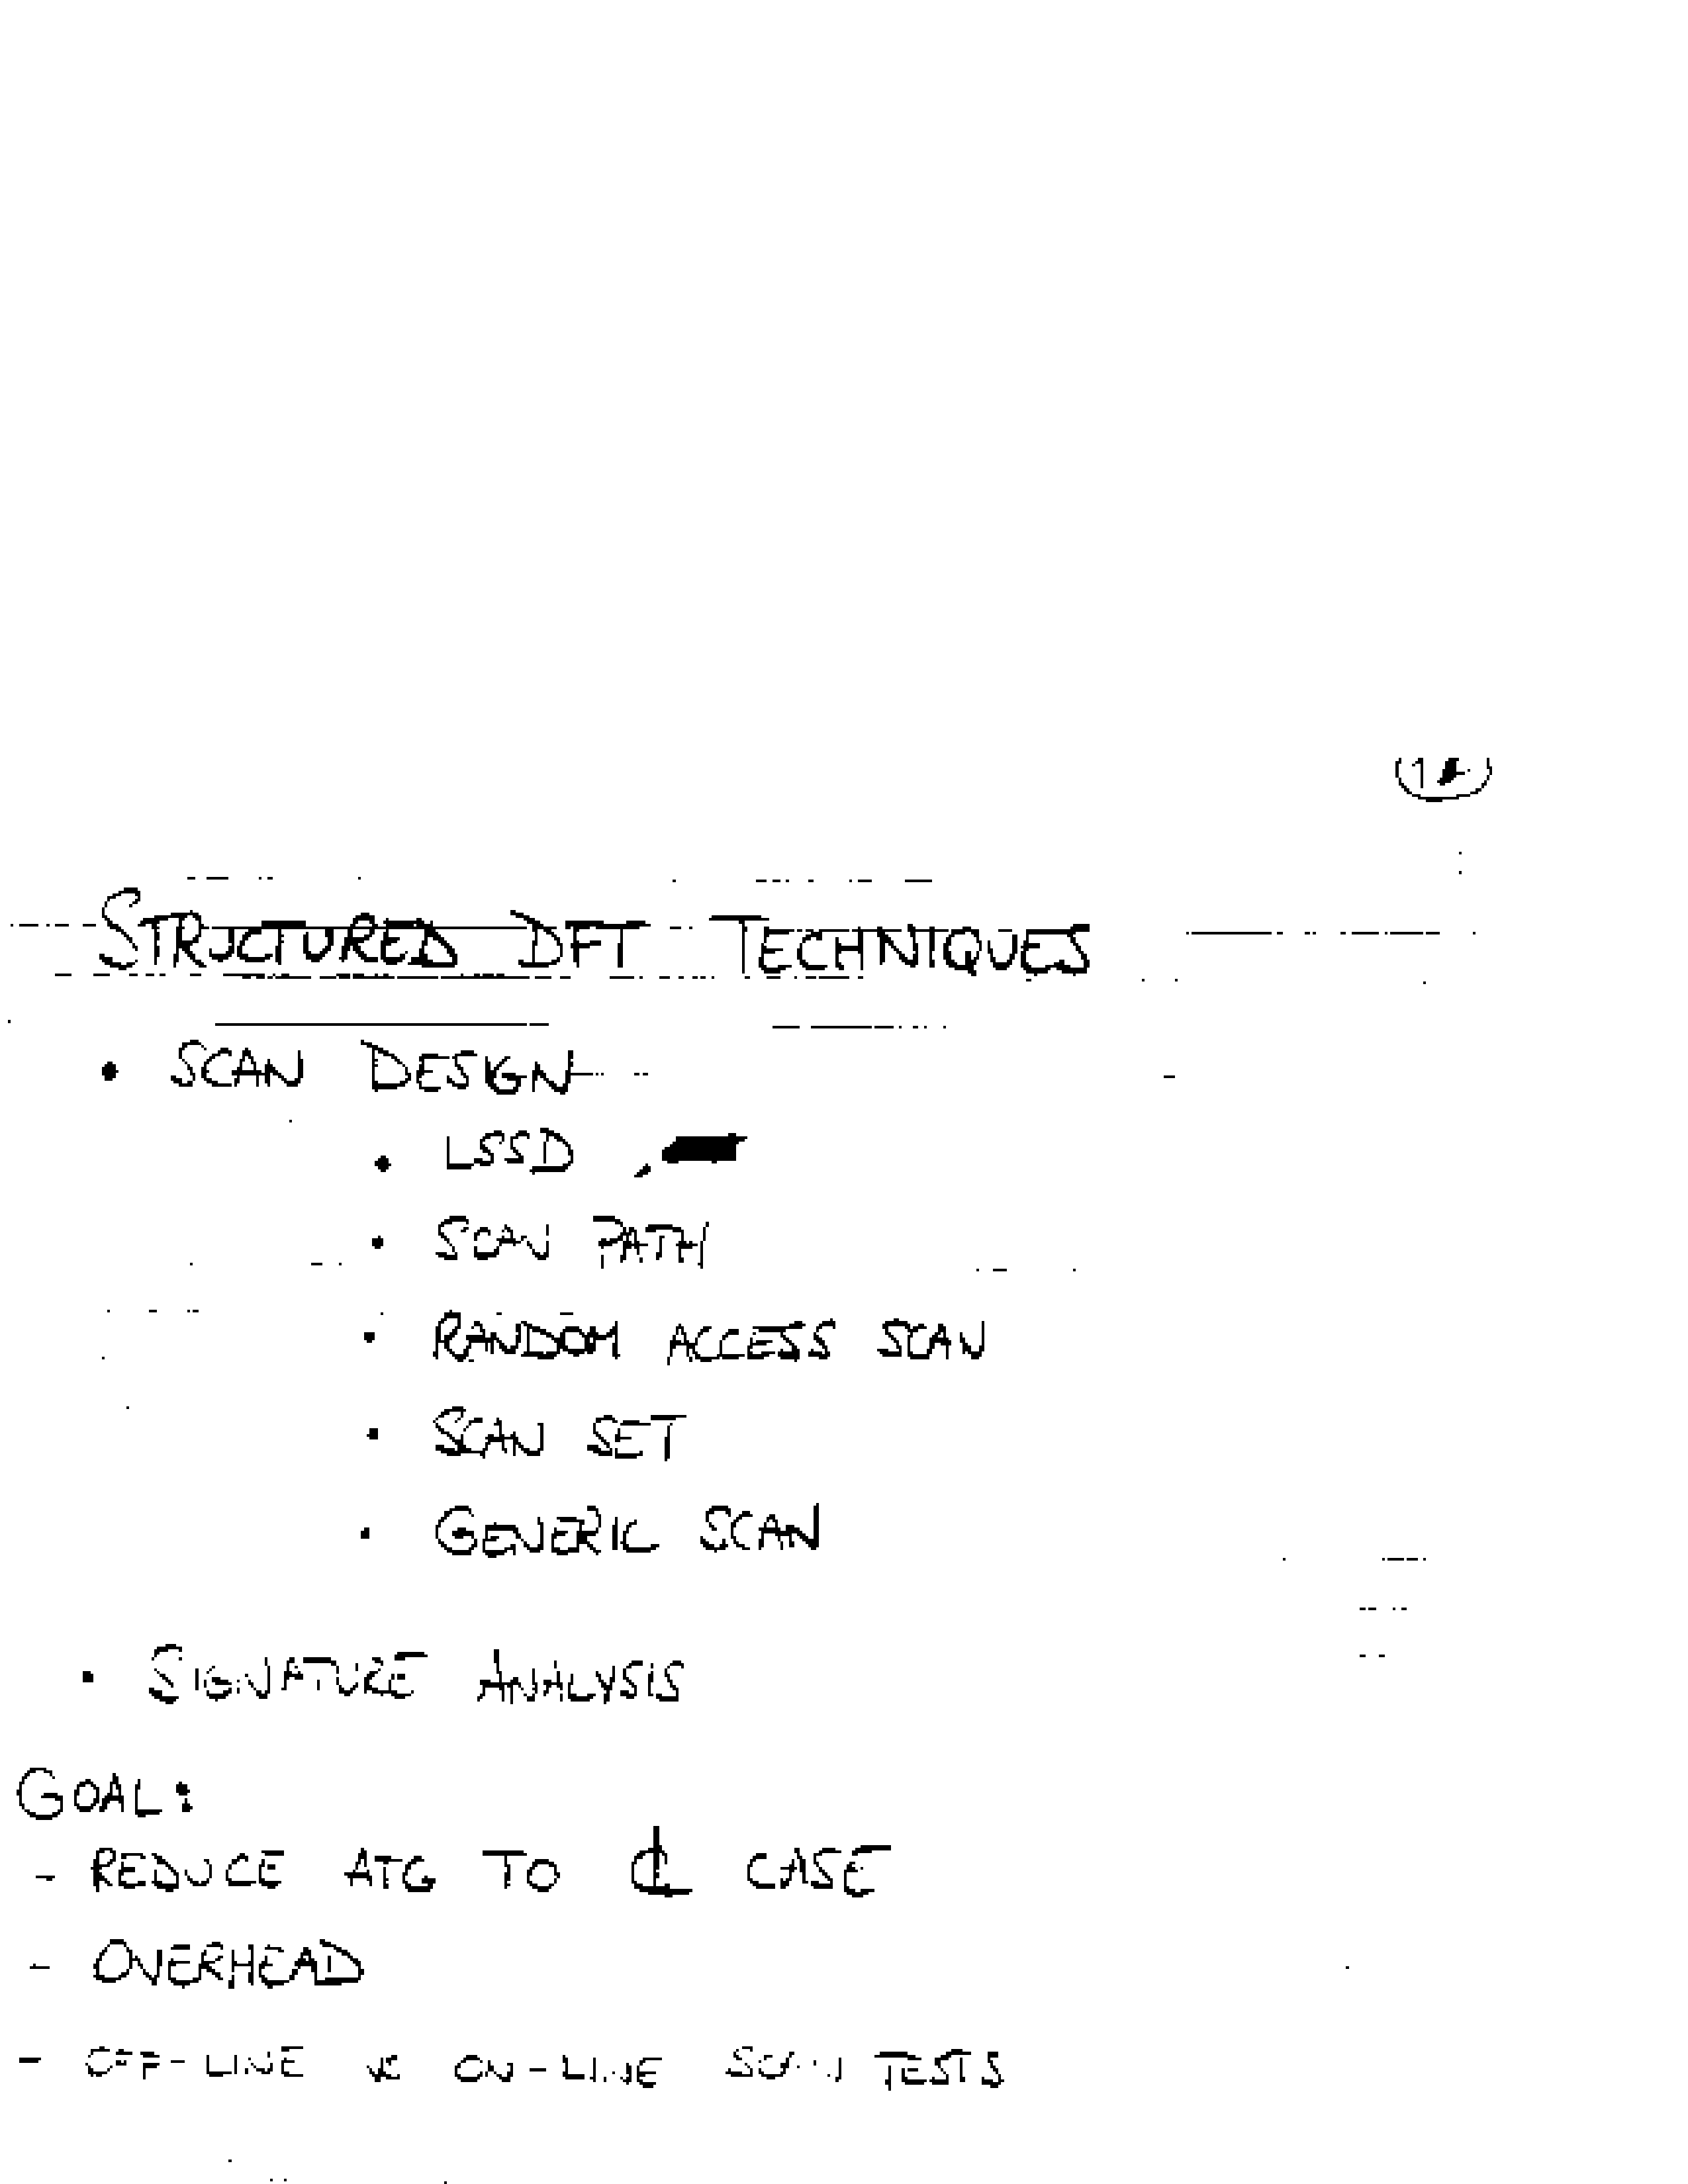 STRUCTURED DFT TECHNIQUES
• SCAN DESIGN
• LSSD
• SCAN PATH
• RANDOM ACCESS SCAN
• SCAN SET
• GENERIC SCAN
• SIGNATURE ANALYSIS
GOAL:
- REDUCE ATG TO CL CASE
- OVERHEAD
- OFF-LINE vs ON-LINE SCAN TESTS